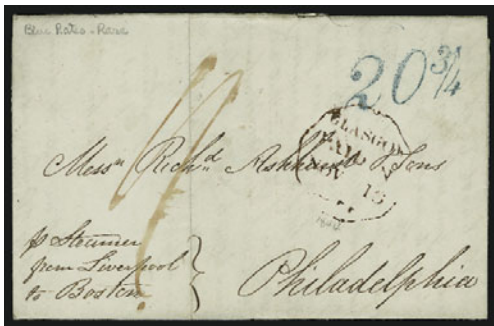 Blue Rates - Rare
20 3/4
GLASGOW
NOV 13
Messrs Richd Ashhurst & Sons
1840
p Steamer
from Liverpool
to Boston
Philadelphia